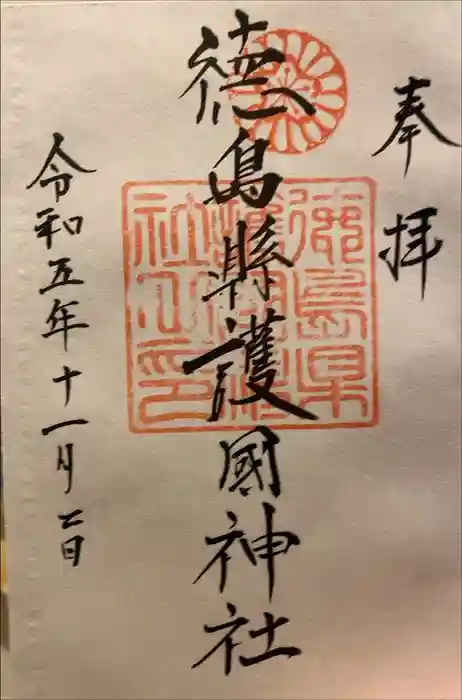 奉拝
徳島縣護國神社
令和五年十一月二日
徳島県護國神社之印